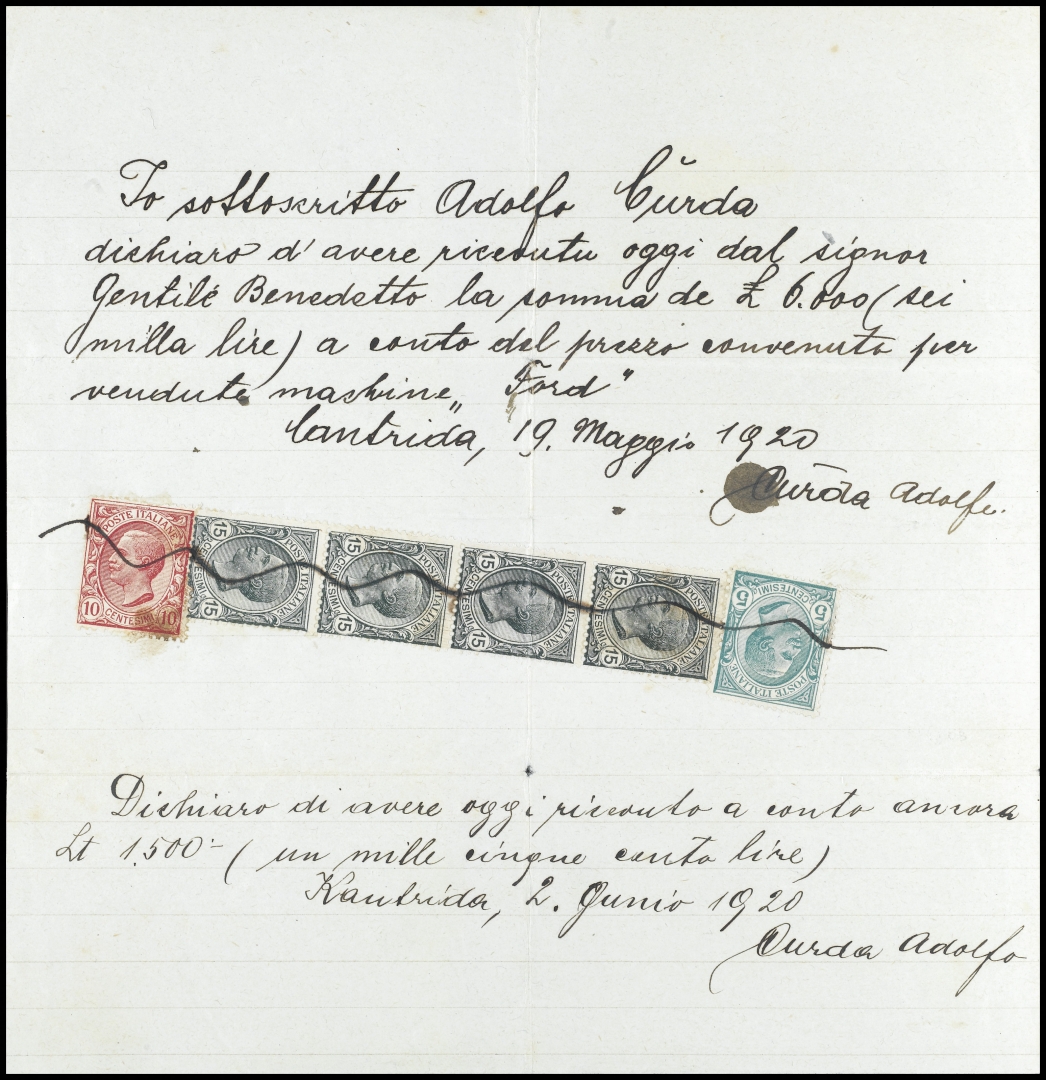 Io sottoscritto Adolfo Čurda
dichiaro d'avere riceoutu oggi dal signor
Gentile Benedetto la somma de ₤ 6.000 (sei
milla lire) a conto del prezzo convenuto per
vendute machine „Ford"
Cantrida, 19. Maggio 1920
Čurda Adolfo.
POSTE ITALIANE
10 CENTESIMI 10
15 CENTESIMI 15
POSTE ITALIANE
15 CENTESIMI 15
POSTE ITALIANE
15 CENTESIMI 15
POSTE ITALIANE
15 CENTESIMI 15
POSTE ITALIANE
5 CENTESIMI 5
POSTE ITALIANE
Dichiaro di avere oggi riceouto a conto ancora
Lt 1.500- (un mille cinque cento lire)
Kantrida, 2. Junio 1920
Čurda Adolfo